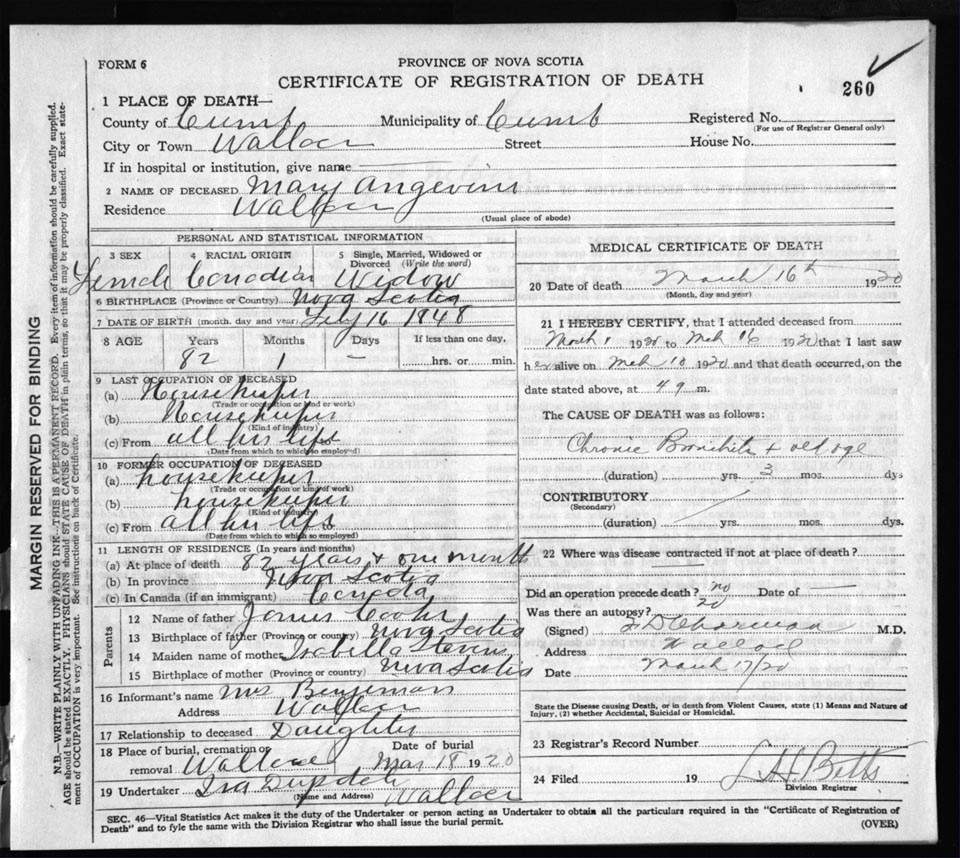 FORM 6
PROVINCE OF NOVA SCOTIA
CERTIFICATE OF REGISTRATION OF DEATH
260
1 PLACE OF DEATH—
County of Cumb Municipality of Cumb Registered No.
(For use of Registrar General only)
City or Town Wallace Street House No.
If in hospital or institution, give name
2 NAME OF DECEASED Mary Angevine
Residence Wallace
(Usual place of abode)
PERSONAL AND STATISTICAL INFORMATION
3 SEX 4 RACIAL ORIGIN 5 Single, Married, Widowed or Divorced (Write the word)
Female Canadian Widow
6 BIRTHPLACE (Province or Country) Nova Scotia
7 DATE OF BIRTH (month, day and year) Feby 16 1848
8 AGE Years Months Days If less than one day,
82 1 — hrs. or min.
9 LAST OCCUPATION OF DECEASED
(a) Housekeeper
(Trade or occupation or kind of work)
(b) Housekeeper
(Kind of industry)
(c) From all his life
(Date from which to which so employed)
10 FORMER OCCUPATION OF DECEASED
(a) housekeeper
(Trade or occupation or kind of work)
(b) housekeeper
(Kind of industry)
(c) From all his life
(Date from which to which so employed)
11 LENGTH OF RESIDENCE (In years and months)
(a) At place of death 82 years + one month
(b) In province Nova Scotia
(c) In Canada (if an immigrant) Canada
Parents
12 Name of father
13 Birthplace of father (Province or country) Nova Scotia
14 Maiden name of mother Isabella Stevens
15 Birthplace of mother (Province or country) Nova Scotia
16 Informant's name Mrs Benjeman
Address Wallace
17 Relationship to deceased Daughter
18 Place of burial, cremation or Date of burial
removal Wallace Mar 18 1920
19 Undertaker Ira Wallace
(Name and Address)
MEDICAL CERTIFICATE OF DEATH
20 Date of death March 16th 1930
(Month, day and year)
21 I HEREBY CERTIFY, that I attended deceased from
March 1 1930 to Mch 16 1930 that I last saw
h er alive on Mch 10 1930 and that death occurred, on the
date stated above, at 4 9 m.
The CAUSE OF DEATH was as follows:
Chronic Bronchitis + old age
(duration) yrs. 3 mos. dys
CONTRIBUTORY
(Secondary)
(duration) yrs. mos. dys.
22 Where was disease contracted if not at place of death?
Did an operation precede death? no Date of —
Was there an autopsy? no
(Signed) M.D.
Address Wallace
Date March 17/30
State the Disease causing Death, or in death from Violent Causes, state (1) Means and Nature of
Injury, (2) whether Accidental, Suicidal or Homicidal.
23 Registrar's Record Number
24 Filed 19 Betts
Division Registrar
SEC. 46—Vital Statistics Act makes it the duty of the Undertaker or person acting as Undertaker to obtain all the particulars required in the "Certificate of Registration of
Death" and to fyle the same with the Division Registrar who shall issue the burial permit. (OVER)
MARGIN RESERVED FOR BINDING
N.B.—WRITE PLAINLY WITH UNFADING INK—THIS IS A PERMANENT RECORD. Every item of information should be carefully supplied.
AGE should be stated EXACTLY. PHYSICIANS should STATE CAUSE OF DEATH in plain terms, so that it may be properly classified. Exact state-
ment of OCCUPATION is very important. See instructions on back of Certificate.